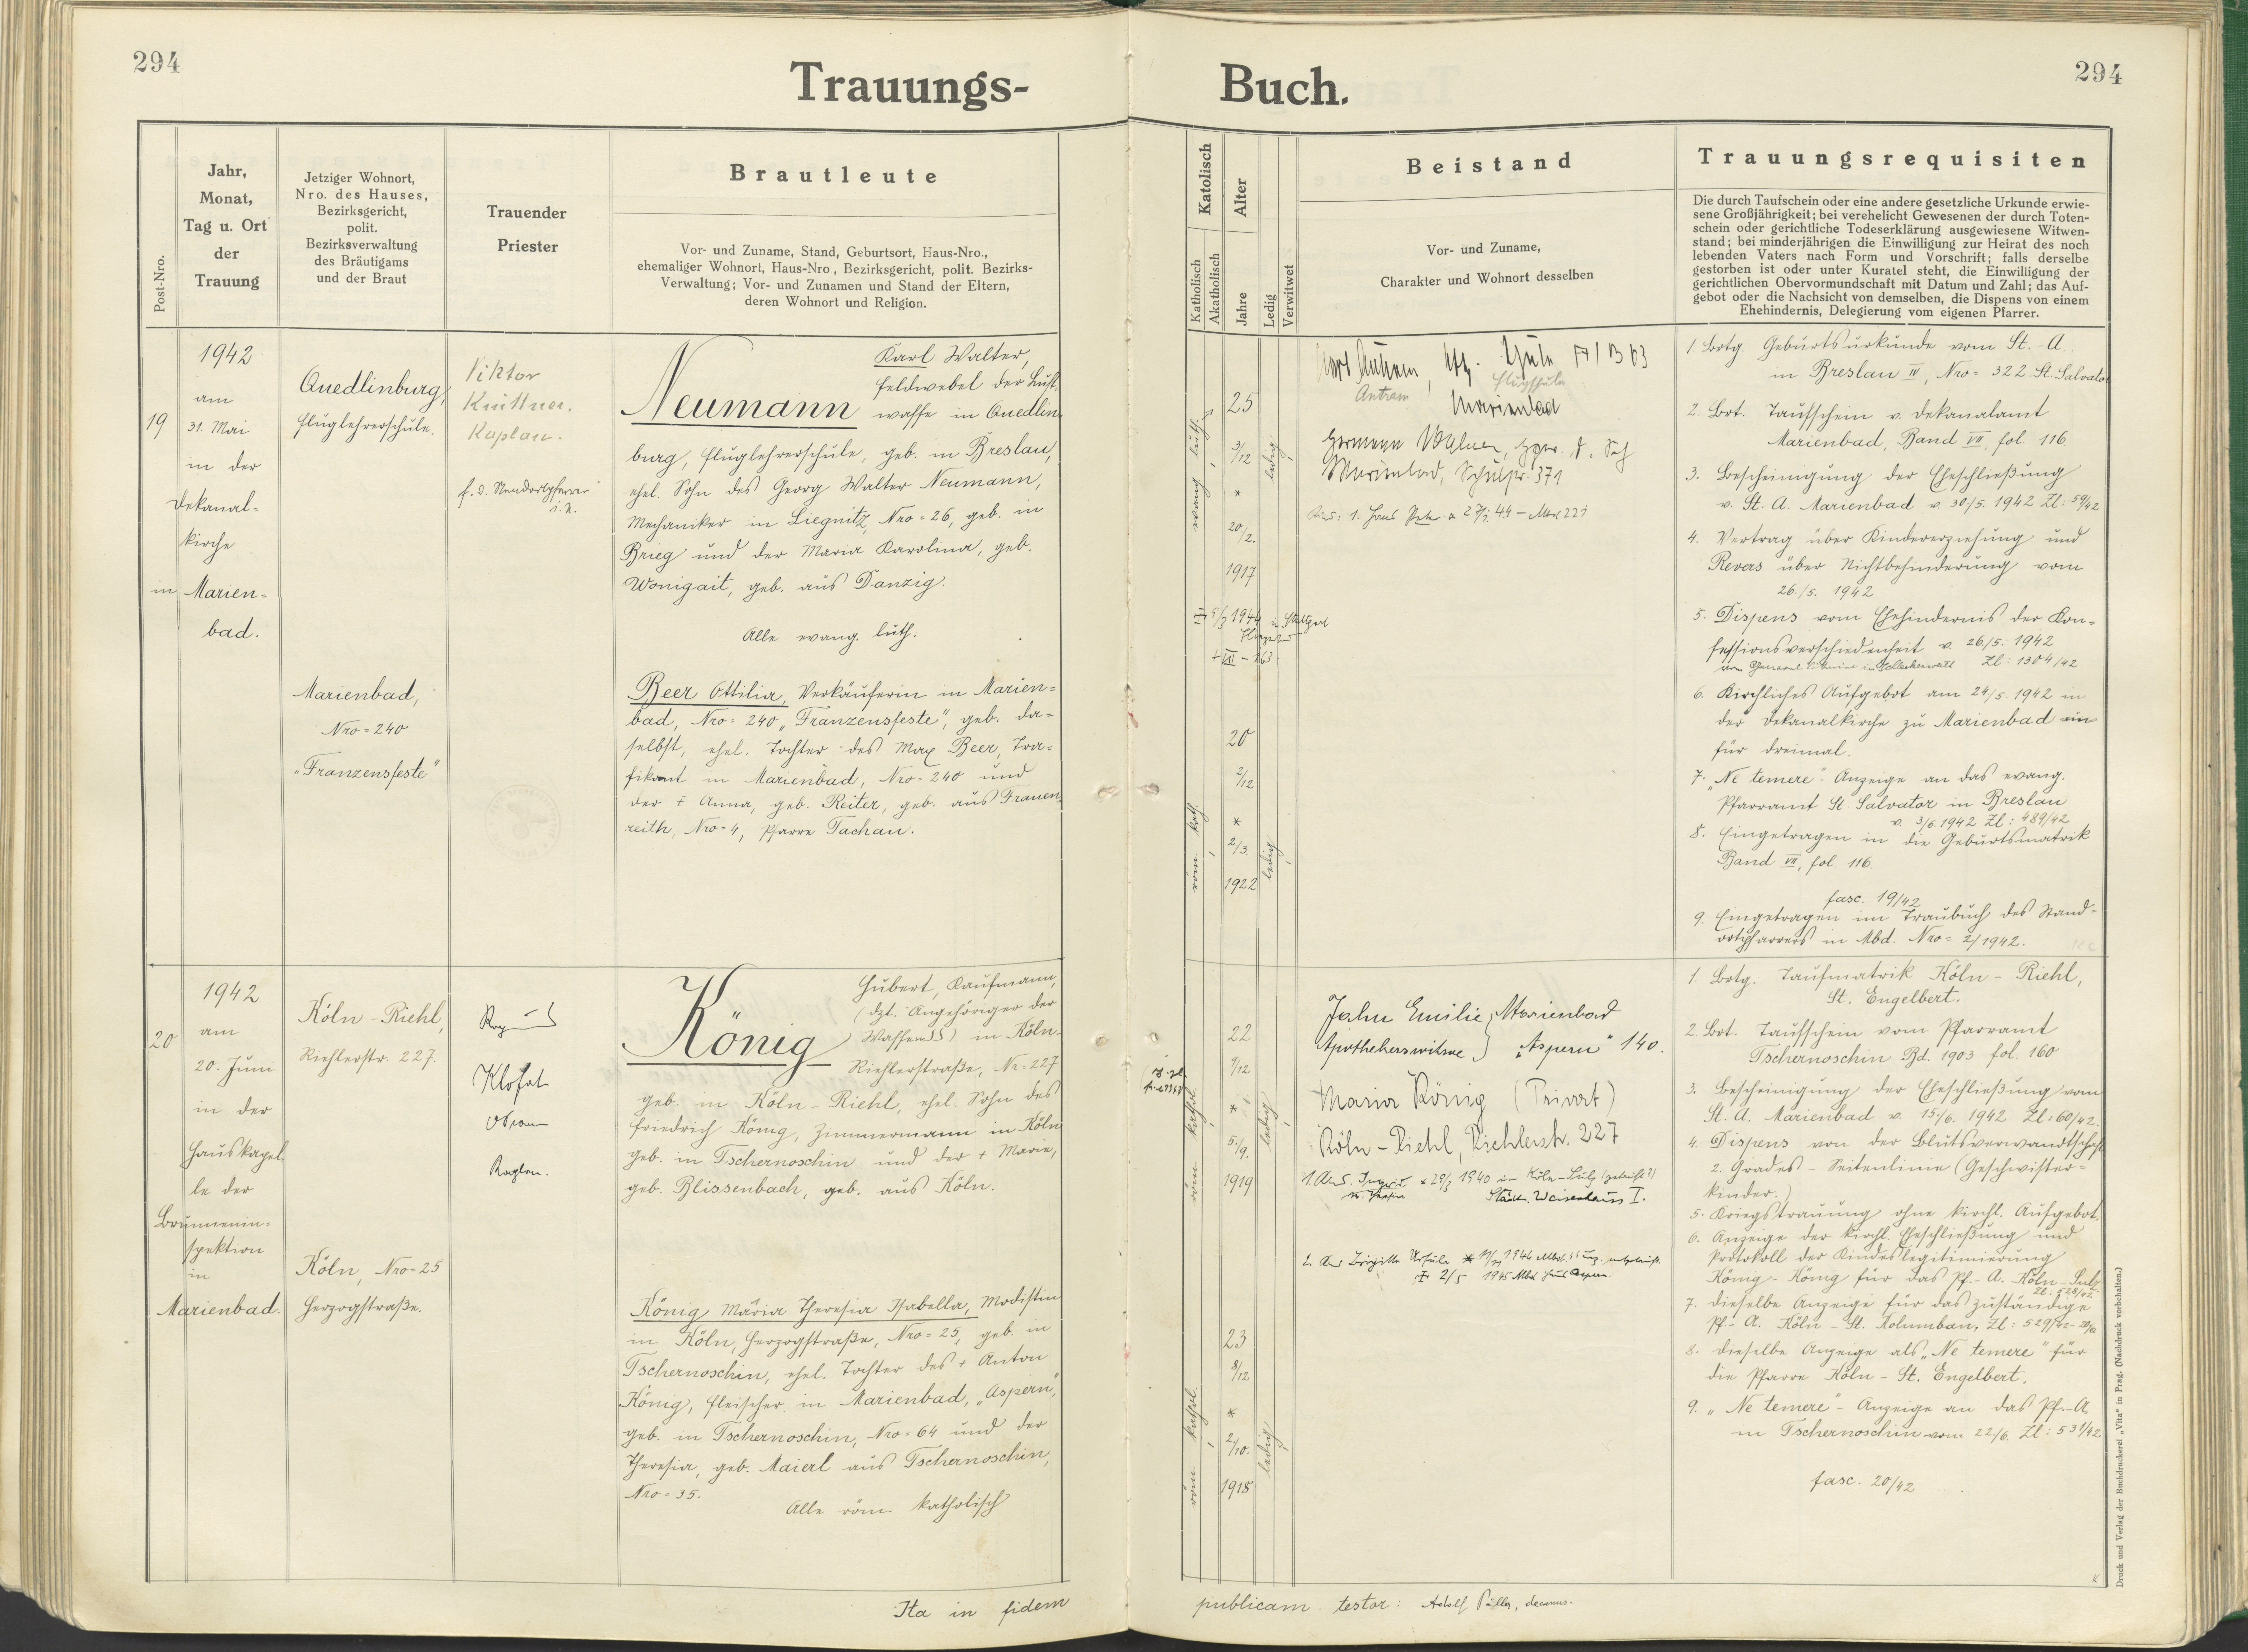 294
Trauungs-
Buch.
294
Post-Nro.
Jahr,
Monat,
Tag u. Ort
der
Trauung
Jetziger Wohnort,
Nro. des Hauses,
Bezirksgericht,
polit.
Bezirksverwaltung
des Bräutigams
und der Braut
Trauender
Priester
Brautleute
Vor- und Zuname, Stand, Geburtsort, Haus-Nro.,
ehemaliger Wohnort, Haus-Nro, Bezirksgericht, polit. Bezirks-
Verwaltung; Vor- und Zunamen und Stand der Eltern,
deren Wohnort und Religion.
Katolisch
Katholisch
Akatholisch
Alter
Jahre
Ledig
Verwitwet
Beistand
Vor- und Zuname,
Charakter und Wohnort desselben
Trauungsrequisiten
Die durch Taufschein oder eine andere gesetzliche Urkunde erwie-
sene Großjährigkeit; bei verehelicht Gewesenen der durch Toten-
schein oder gerichtliche Todeserklärung ausgewiesene Witwen-
stand; bei minderjährigen die Einwilligung zur Heirat des noch
lebenden Vaters nach Form und Vorschrift; falls derselbe
gestorben ist oder unter Kuratel steht, die Einwilligung der
gerichtlichen Obervormundschaft mit Datum und Zahl; das Auf-
gebot oder die Nachsicht von demselben, die Dispens von einem
Ehehindernis, Delegierung vom eigenen Pfarrer.
19
1942
am
31. Mai
in der
Dekanal-
kirche
in Marien-
bad.
Quedlinburg,
Fluglehrerschule.
Viktor
Knittner.
Kaplan.
f. d. Standortpfarrer
i. V.
Neumann
Karl Walter,
Feldwebel der Luft-
waffe in Quedlin-
burg, Fluglehrerschule, geb. in Breslau,
ehel. Sohn des Georg Walter Neumann,
Mechaniker in Liegnitz, Nro = 26, geb. in
Brieg und der Maria Karolina, geb.
Wonigait, geb. aus Danzig.
Alle evang. luth.
Marienbad,
Nro = 240
"Franzensfeste"
Beer Ottilia, Verkäuferin in Marien=
bad, Nro = 240 "Franzensfeste", geb. da=
selbst, ehel. Tochter des Max Beer, Tra=
fikant in Marienbad, Nro = 240 und
der + Anna, geb. Reiter, geb. aus Frauen
reith, Nro = 4, Pfarre Tachau.
evang. luth.
25
3/12
*
20/2.
1917
ledig
1944 in Stuttgart
röm. kath.
20
2/12
*
2/3.
1922
ledig
Antram
Flugschule
Marienbad
Hermann
Marienbad, 371
1. Hans Peter
1. Btg. Geburtsurkunde vom St.-A.
in Breslau IV, Nro = 322 St. Salvator
2. Brt. Taufschein v. Dekanalamt
Marienbad, Band VII, fol. 116
3. Bescheinigung der Eheschließung
v. St. A. Marienbad v. 30/5. 1942 Zl: 59/42
4. Vertrag über Kindererziehung und
Revers über Nichtbehinderung vom
26./5. 1942
5. Dispens vom Ehehindernis der Kon=
fessionsverschiedenheit v. 26/5. 1942
Zl: 1304/42
6. Kirchliches Aufgebot am 24/5. 1942 in
der Dekanalkirche zu Marienbad ein
für dreimal.
7. "Ne temere"- Anzeige an das evang.
Pfarramt St. Salvator in Breslau
v. 3/6. 1942 Zl: 489/42
8. Eingetragen in die Geburtsmatrik
Band VII, fol. 116.
fasc. 19/42
9. Eingetragen im Traubuch des Stand-
ortpfarrers in Mbd. Nro = 2/1942.
20
1942
am
20. Juni
in der
Hauskapel
le der
Brunnenin-
spektion
in
Marienbad.
Köln-Riehl,
Riehlerstr. 227.
Klofat
Kaplan.
König
Hubert, Kaufmann,
(dzt. Angehöriger der
Waffen SS) in Köln
Riehlerstraße, Nr = 227
geb. in Köln-Riehl, ehel. Sohn des
Friedrich König, Zimmermann in Köln
geb. in Tschernoschin und der + Marie,
geb. Blissenbach, geb. aus Köln.
Köln, Nro = 25
Herzogstraße.
König Maria Theresia Isabella, Modistin
in Köln, Herzogstraße, Nro = 25, geb. in
Tschernoschin, ehel. Tochter des + Anton
König, Fleischer in Marienbad, "Aspern",
geb. in Tschernoschin, Nro = 64 und der
Theresia, geb. Maierl aus Tschernoschin,
Nro = 35.
Alle röm. katholisch
röm. kathol.
22
9/12
*
5./9.
1919
ledig
röm. kathol.
23
8/12
*
2/10.
1918
ledig
Jahn Emilie, Marienbad
Apothekerswitwe "Aspern" 140.
Maria König (Privat)
Köln-Riehl, Riehlerstr. 227
1940 in Köln-Sülz
2/5 1945
1. Btg. Taufmatrik Köln-Riehl,
St. Engelbert.
2. Brt. Taufschein vom Pfarramt
Tschernoschin Bd. 1903 fol. 160
3. Bescheinigung der Eheschließung vom
St. A. Marienbad v. 15./6. 1942 Zl: 60/42.
4. Dispens von der Blutsverwandtschaft
2. Grades - Seitenlinie (Geschwister-
kinder.)
5. Kriegstrauung ohne kirchl. Aufgebot.
6. Anzeige der kirchl. Eheschließung und
Protokoll der Kindeslegitimierung
König-König für das Pf.-A. Köln-Sülz
Zl: 528/42
7. Dieselbe Anzeige für das zuständige
Pf.-A. Köln-St. Kolumban, Zl: 529/42
8. Dieselbe Anzeige als "Ne temere" für
die Pfarre Köln-St. Engelbert.
9. "Ne temere"- Anzeige an das Pf.-A.
in Tschernoschin vom 22/6. Zl: 531/42
fasc. 20/42
Ita in fidem
publicam testor: Adolf decanus.
Druck und Verlag der Buchdruckerei „Vita" in Prag. (Nachdruck vorbehalten.)